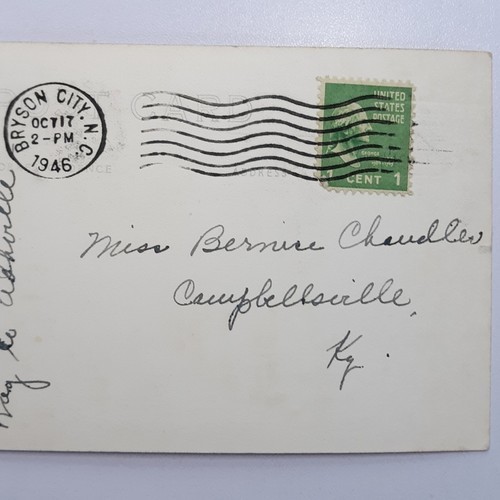 BRYSON CITY, N.C.
OCT 17
2-PM
1946
CARD
ADDRESS
UNITED
STATES
POSTAGE
1 CENT 1
Miss Bernice Chandler
Campbellsville,
Ky.
way to Ashville